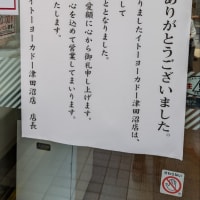 ありがとうございました。
りましたイトーヨーカドー津田沼店は、
して
ととなりました。
愛顧に心から御礼申し上げます。
心を込めて営業してまいります。
たします。
イトーヨーカドー津田沼店 店長